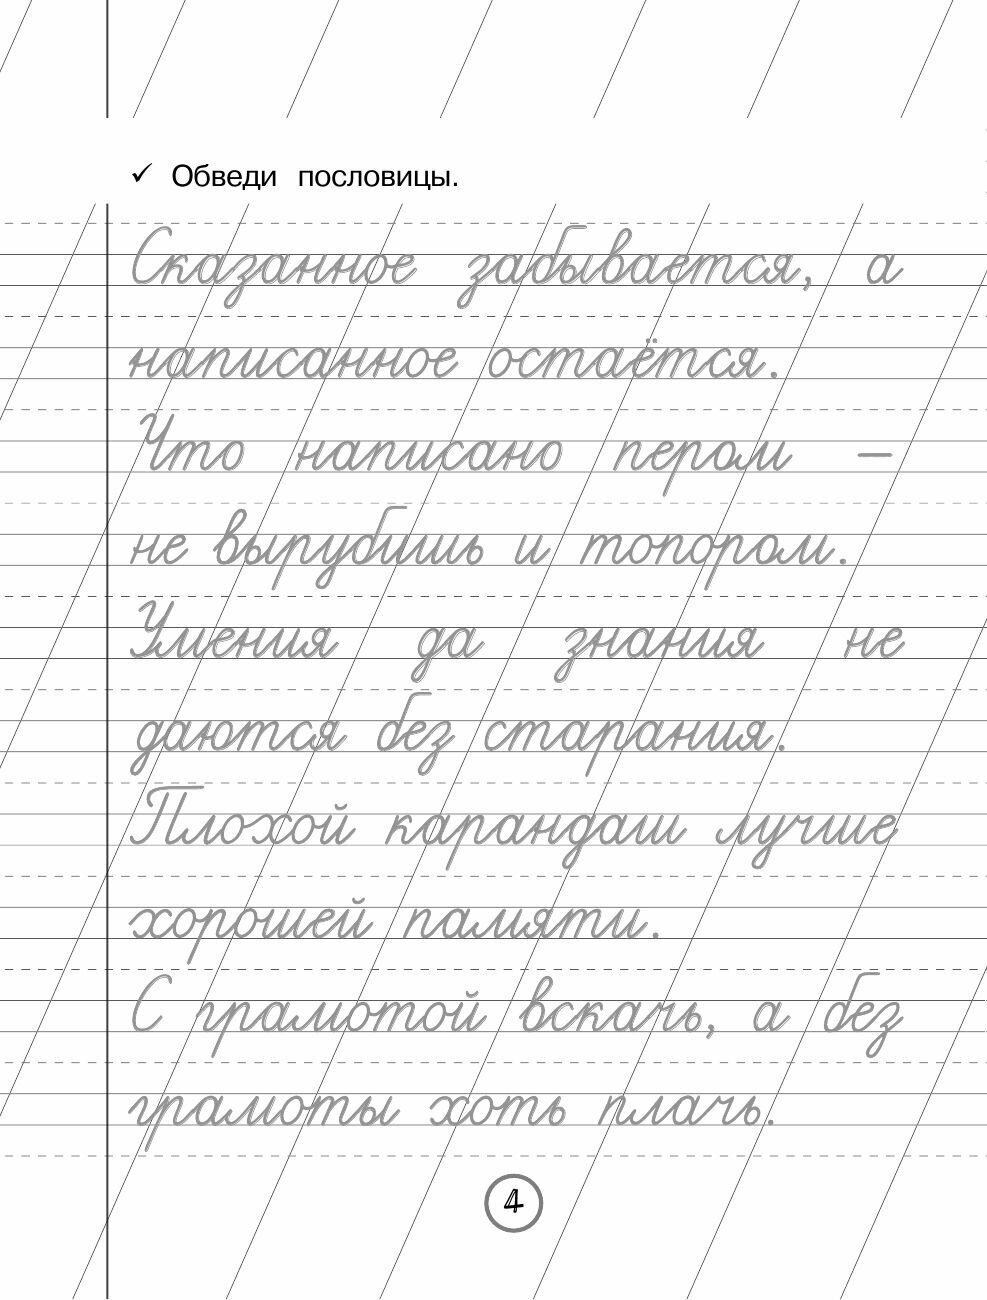 ✓ Обведи пословицы.
Сказанное забывается, а
написанное остаётся.
Что написано пером –
не вырубишь и топором.
Умения да знания не
даются без старания.
Плохой карандаш лучше
хорошей памяти.
С грамотой вскачь, а без
грамоты хоть плачь.
4